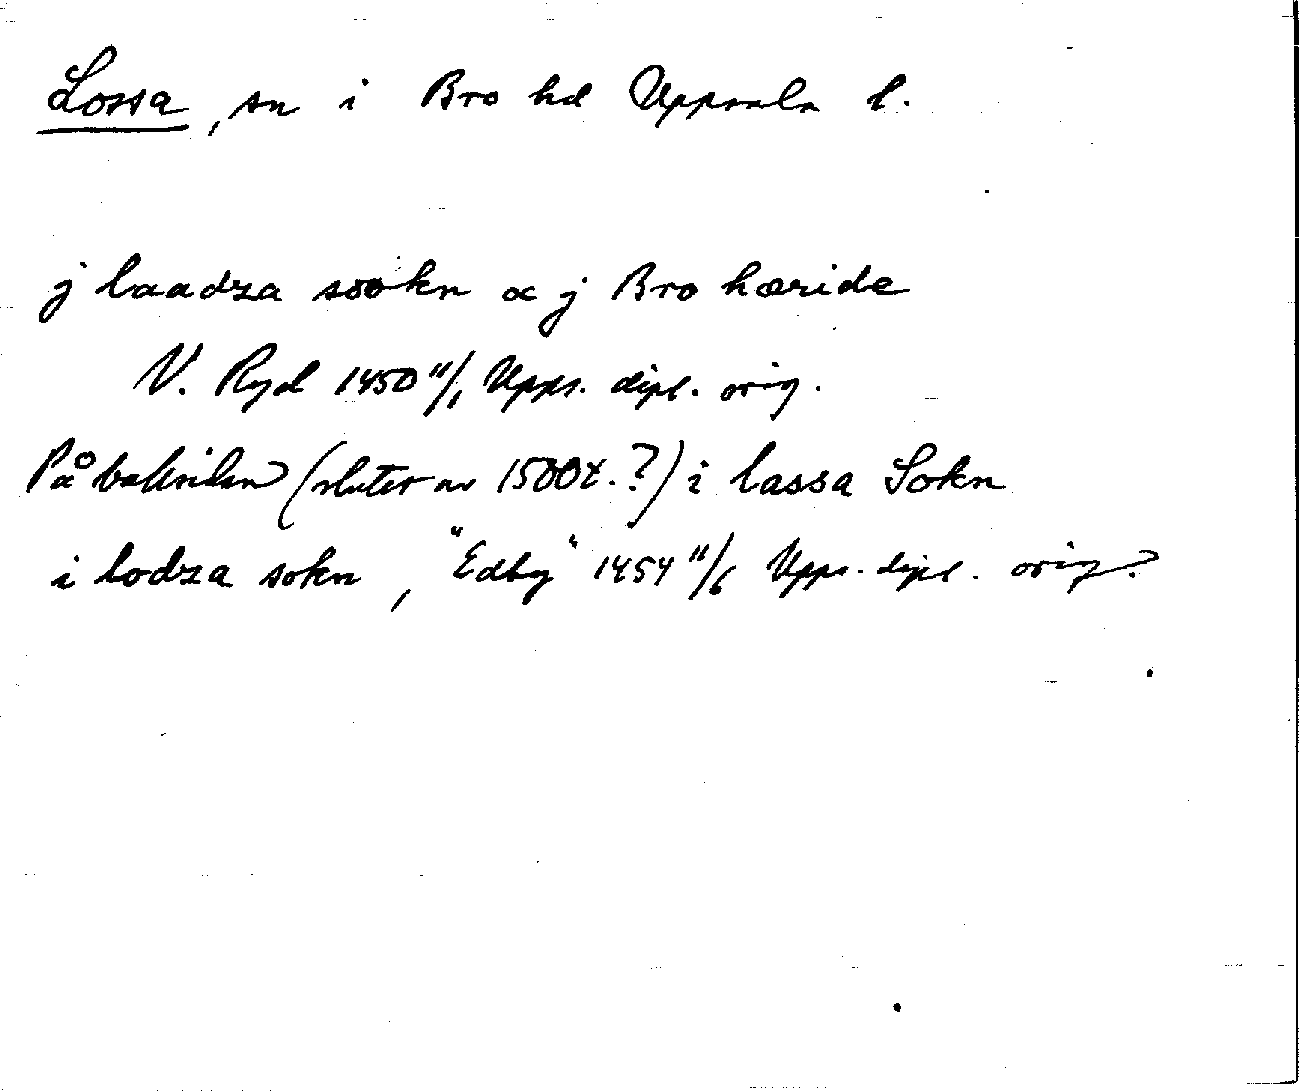 Lossa, sn i Bro hd Uppsala l.
j laadza sookn oc j Bro hæride
V. Ryd 1450 11/1 Upps. dipl. orig.
På baksidan (slutet av 1500t.?) i lassa Sokn
i lodza sokn, "Edby" 1454 11/6 Upps. dipl. orig.